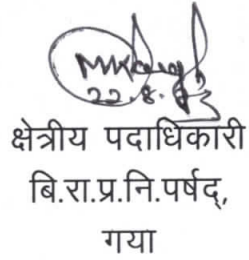 22.8.23
क्षेत्रीय पदाधिकारी
बि.रा.प्र.नि.पर्षद्,
गया